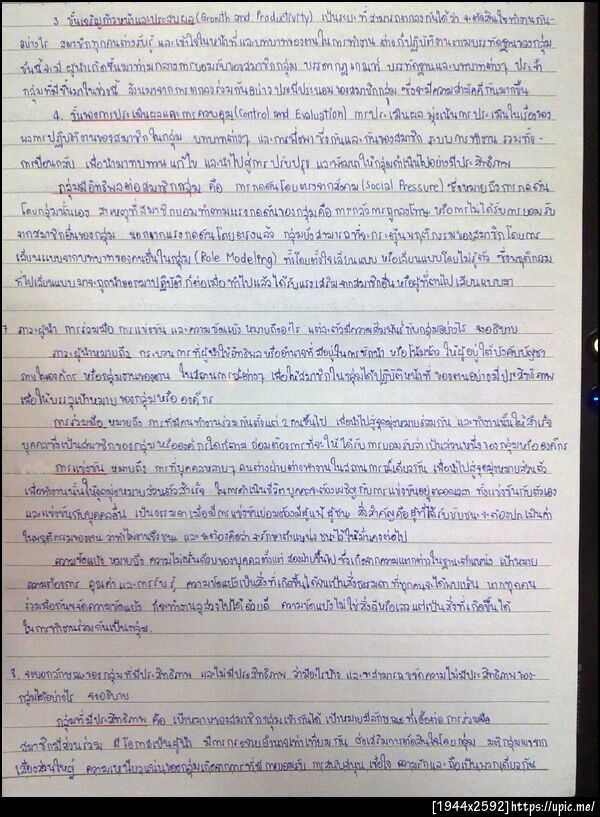 3. ขั้นเจริญก้าวหน้าและประสบผล (Growth and Productivity) เป็นระยะที่สามารถตกลงกันได้ว่า จะตัดสินใจทำงานกัน-
อย่างไร สมาชิกทุกคนต่างรับรู้ และเข้าใจในหน้าที่และบทบาทของตนในการทำงาน ต่างก็ปฏิบัติงานตามบรรทัดฐานของกลุ่ม
ขั้นนี้จะมีผู้นำเกิดขึ้นมาท่ามกลางการยอมรับของสมาชิกกลุ่ม บรรดากฎเกณฑ์ บรรทัดฐานและบทบาทต่างๆ ประจำ
กลุ่มที่มีขึ้นมาในช่วงนี้ ล้วนมาจากการตกลงร่วมกันอย่างประนีประนอมของสมาชิกกลุ่ม ซึ่งจะมีความสามัคคีกันมากขึ้น
4. ขั้นของการประเมินผลและการควบคุม (Control and Evaluation) การประเมินผล มุ่งเน้นการประเมินในเรื่องของ
ผลการปฏิบัติงานของสมาชิกในกลุ่ม บทบาทต่างๆ และการพึ่งพาซึ่งกันและกันของสมาชิก ระบบการทำงาน รวมทั้ง-
การป้อนกลับ เพื่อนำมาทบทวน แก้ไข และนำไปสู่การปรับปรุง และพัฒนาให้กลุ่มดำเนินไปอย่างมีประสิทธิภาพ
กลุ่มมีอิทธิพลต่อสมาชิกกลุ่ม คือ การกดดันโดยตรงจากสังคม (Social Pressure) ซึ่งหมายถึงการกดดัน
โดยกลุ่มนั่นเอง สาเหตุที่สมาชิกยอมทำตามแรงกดดันของกลุ่มคือ การกลัวการถูกลงโทษ หรือการไม่ได้รับการยอมรับ
จากสมาชิกอื่นของกลุ่ม นอกจากแรงกดดันโดยตรงแล้ว กลุ่มยังสามารถที่จะกระตุ้นพฤติกรรมของสมาชิกโดยการ
เลียนแบบจากบทบาทของคนอื่นในกลุ่ม (Role Modeling) ทั้งโดยตั้งใจเลียนแบบ หรือเลียนแบบโดยไม่รู้ตัว ซึ่งพฤติกรรม
ที่ไปเลียนแบบมาจะถูกนำออกมาปฏิบัติ ก็ต่อเมื่อทำไปแล้วได้รับแรงเสริมจากสมาชิกอื่น หรือผู้ที่ตนไปเลียนแบบมา
7. ภาวะผู้นำ การร่วมมือ การแข่งขัน และความขัดแย้ง หมายถึงอะไร แต่ละตัวมีความสัมพันธ์กับกลุ่มอย่างไร จงอธิบาย
ภาวะผู้นำหมายถึง กระบวนการที่ผู้นำใช้อิทธิพล หรืออำนาจที่มีอยู่ในการชักนำ หรือโน้มน้าว ให้ผู้อยู่ใต้บังคับบัญชา
ภายในองค์กร หรือกลุ่มงานของตน ในสถานการณ์ต่างๆ เพื่อให้สมาชิกในกลุ่มได้ปฏิบัติหน้าที่ของตนอย่างมีประสิทธิภาพ
เพื่อให้บรรลุเป้าหมายของกลุ่มหรือองค์กร
การร่วมมือ หมายถึง การที่มีคนทำงานร่วมกันตั้งแต่ 2 คนขึ้นไป เพื่อนำไปสู่จุดมุ่งหมายร่วมกัน และทำงานนั้นให้สำเร็จ
บุคคลซึ่งเป็นสมาชิกของกลุ่มหรือองค์กรใดก็ตาม ย่อมต้องการที่จะให้ได้รับการยอมรับว่าเป็นส่วนหนึ่งของกลุ่มหรือองค์กร
การแข่งขัน หมายถึง การที่บุคคลหลายๆ คนต่างฝ่ายต่างทำงานในสถานการณ์เดียวกัน เพื่อนำไปสู่จุดมุ่งหมายส่วนตัว
เพื่อทำงานนั้นให้จุดมุ่งหมายส่วนตัวสำเร็จ ในการดำเนินชีวิต บุคคลจะต้องเผชิญกับการแข่งขันอยู่ตลอดเวลา ทั้งแข่งขันกับตัวเอง
และแข่งขันกับบุคคลอื่น เป็นธรรมดาเมื่อมีการแข่งขันย่อมต้องมีผู้แพ้ผู้ชนะ สิ่งสำคัญคือ ผู้ที่ได้รับชัยชนะจะต้องประเมินค่า
ในพฤติกรรมของตน ว่าทำไมตนจึงชนะ และจะต้องคิดว่า จะรักษาตำแหน่งชนะไว้ให้มั่นคงต่อไป
ความขัดแย้ง หมายถึง ความไม่เห็นด้วยของบุคคลตั้งแต่ สองฝ่ายขึ้นไป ซึ่งเกิดจากความแตกต่างในฐานะตำแหน่ง เป้าหมาย
ความต้องการ คุณค่า และการรับรู้ ความขัดแย้งเป็นสิ่งที่เกิดขึ้นได้เสมอเป็นสิ่งธรรมดาที่ทุกคนจะได้พบเห็น หากทุกคน
ร่วมมือกันขจัดความขัดแย้ง ก็จะทำงานลุล่วงไปได้ด้วยดี ความขัดแย้งไม่ใช่สิ่งดีหรือเลว แต่เป็นสิ่งที่เกิดขึ้นได้
ในการทำงานร่วมกันเป็นกลุ่ม.
8. จงบอกลักษณะของกลุ่มที่มีประสิทธิภาพ และไม่มีประสิทธิภาพ ว่ามีอะไรบ้าง และจะสามารถขจัดความไม่มีประสิทธิภาพของ-
กลุ่มได้อย่างไร จงอธิบาย
กลุ่มที่มีประสิทธิภาพ คือ เป้าหมายของสมาชิกกลุ่มเข้ากันได้ เป้าหมายมีลักษณะที่เอื้อต่อ การร่วมมือ
สมาชิกมีส่วนร่วม มีโอกาสเป็นผู้นำ มีการกระจายอำนาจเท่าเทียมกัน ส่งเสริมการตัดสินใจโดยกลุ่ม มติกลุ่มมาจาก
เสียงส่วนใหญ่ ความเหนียวแน่นของกลุ่มเกิดจากการที่มีการยอมรับ การสนับสนุน เชื่อใจ ความรักและถือเป็นพวกเดียวกัน
[1944x2592]https://upic.me/